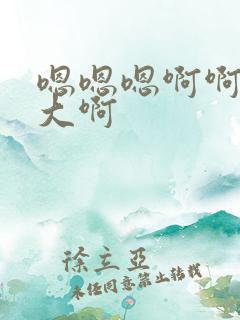 嗯嗯嗯啊啊
大啊
徐立亞
未经同意禁止转载